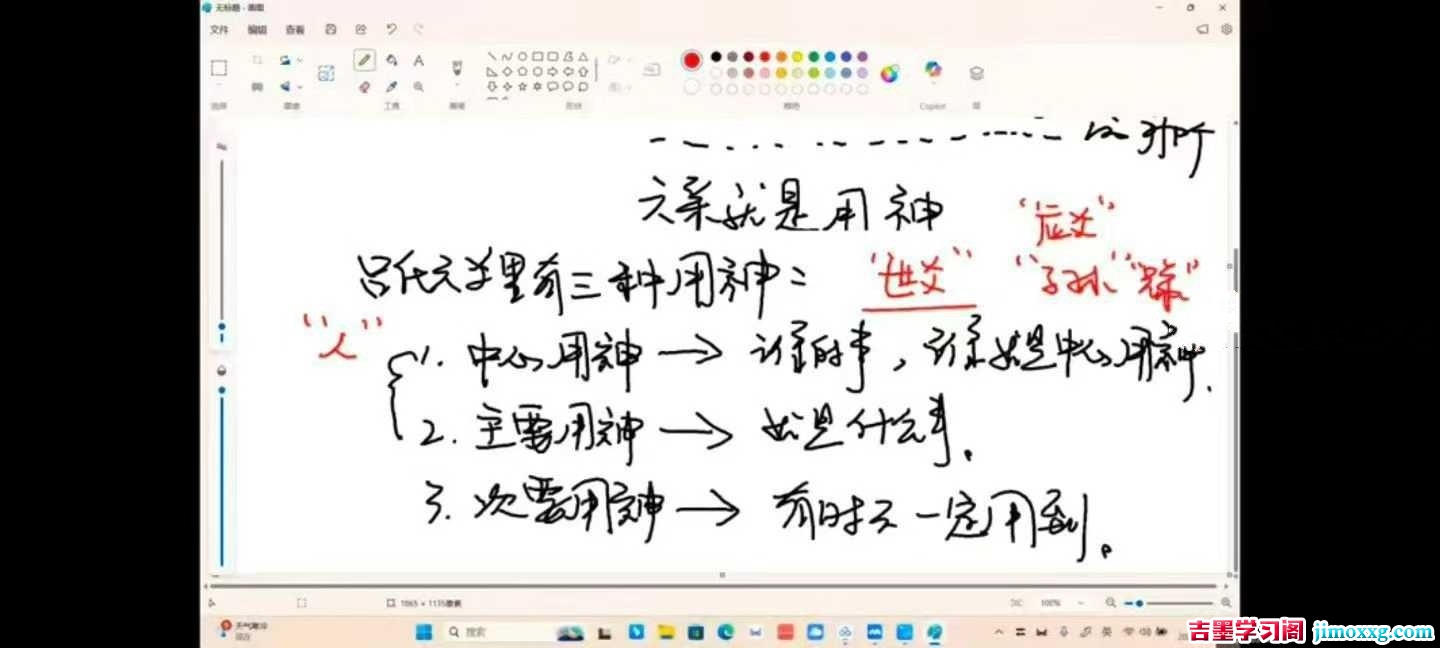 无标题 - 画图
文件 编辑 查看
选择 图像 工具 画笔 形状 颜色 Copilot 层
六亲就是用神
"应爻"
吕氏六爻里有三种用神: "世爻" "子孙"
"人"
1. 中心用神 → 谁的事,谁就是中心用神.
2. 主要用神 → 就是什么事.
3. 次要用神 → 有时不一定用到.
1865 × 1135像素 100%
搜索
英
吉墨学习阁 jimoxxg.com